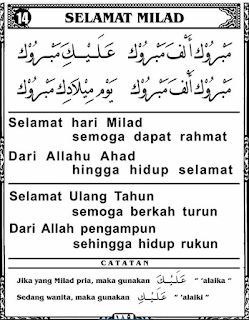 14 SELAMAT MILAD
مَبْرُوْك أَلْف مَبْرُوْك عَلَيْكَ مَبْرُوْك
مَبْرُوْك أَلْف مَبْرُوْك يَوْم مِيْلَادِك مَبْرُوْك
Selamat hari Milad
semoga dapat rahmat
Dari Allahu Ahad
hingga hidup selamat
Selamat Ulang Tahun
semoga berkah turun
Dari Allah pengampun
sehingga hidup rukun
CATATAN
Jika yang Milad pria, maka gunakan عَلَيْكَ " 'alaika "
Sedang wanita, maka gunakan عَلَيْكِ " 'alaiki "